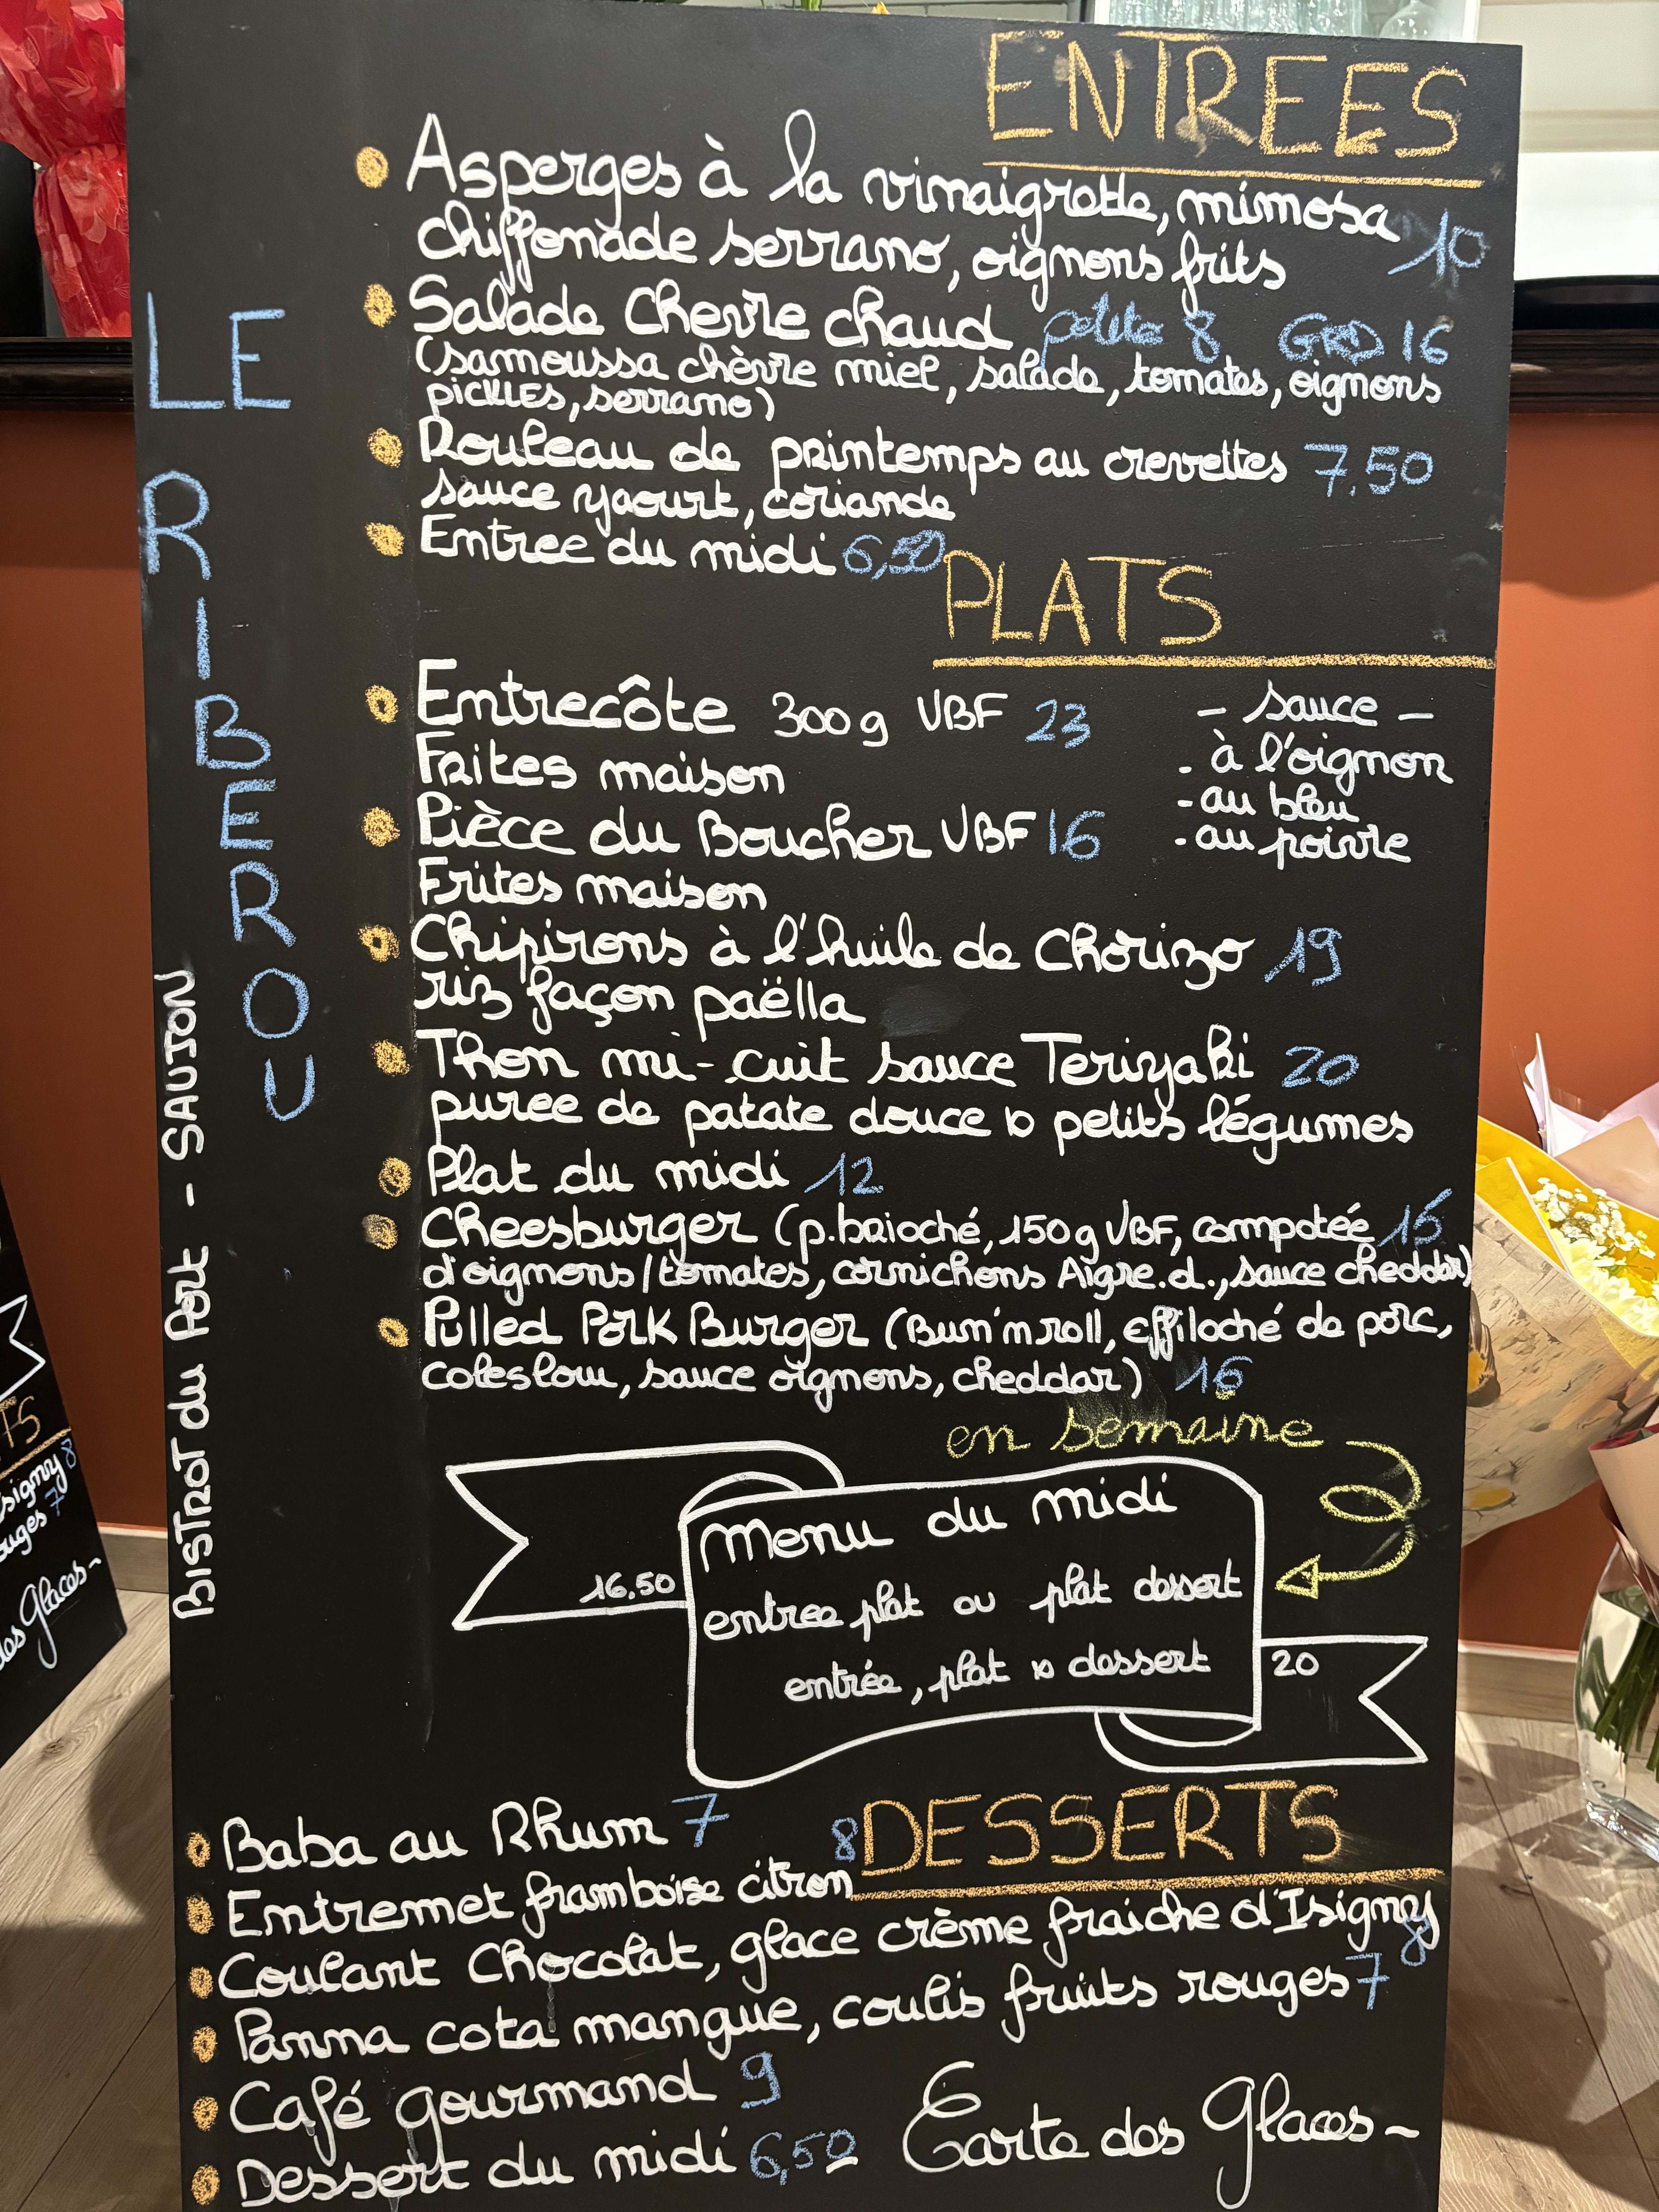 ENTREES
Asperges à la vinaigrette, mimosa
chiffonade serrano, oignons frits 10
Salade Chevre chaud petite 8 GRD 16
(samoussa chèvre miel, salade, tomates, oignons
pickles, serrano)
Rouleau de printemps au crevettes 7.50
sauce yaourt, coriande
Entree du midi 6,50
PLATS
Entrecôte 300g VBF 23
Frites maison
Pièce du Boucher VBF 16
Frites maison
- sauce -
- à l'oignon
- au bleu
- au poivre
Chipirons à l'huile de Chorizo 19
riz façon paëlla
Thon mi-cuit sauce Teriyaki 20
puree de patate douce & petits légumes
Plat du midi 12
Cheesburger (p.brioché, 150g VBF, compotée 15
d'oignons/tomates, cornichons Aigre.d., sauce cheddar)
Pulled Pork Burger (Bun'n roll, Effiloché de porc,
coleslow, sauce oignons, cheddar) 16
en semaine
Menu du midi
16.50 entree plat ou plat dessert
entrée, plat & dessert 20
DESSERTS
Baba au Rhum 7
Entremet framboise citron 8
Coulant Chocolat, glace crème fraiche d'Isigny 8
Panna cota mangue, coulis fruits rouges 7
Café gourmand 9
Dessert du midi 6,50
Carte des Glaces -
LE
RIBEROU
BISTROT du Port - SAUJON
TS
signy 8
ouges 7
des Glaces -